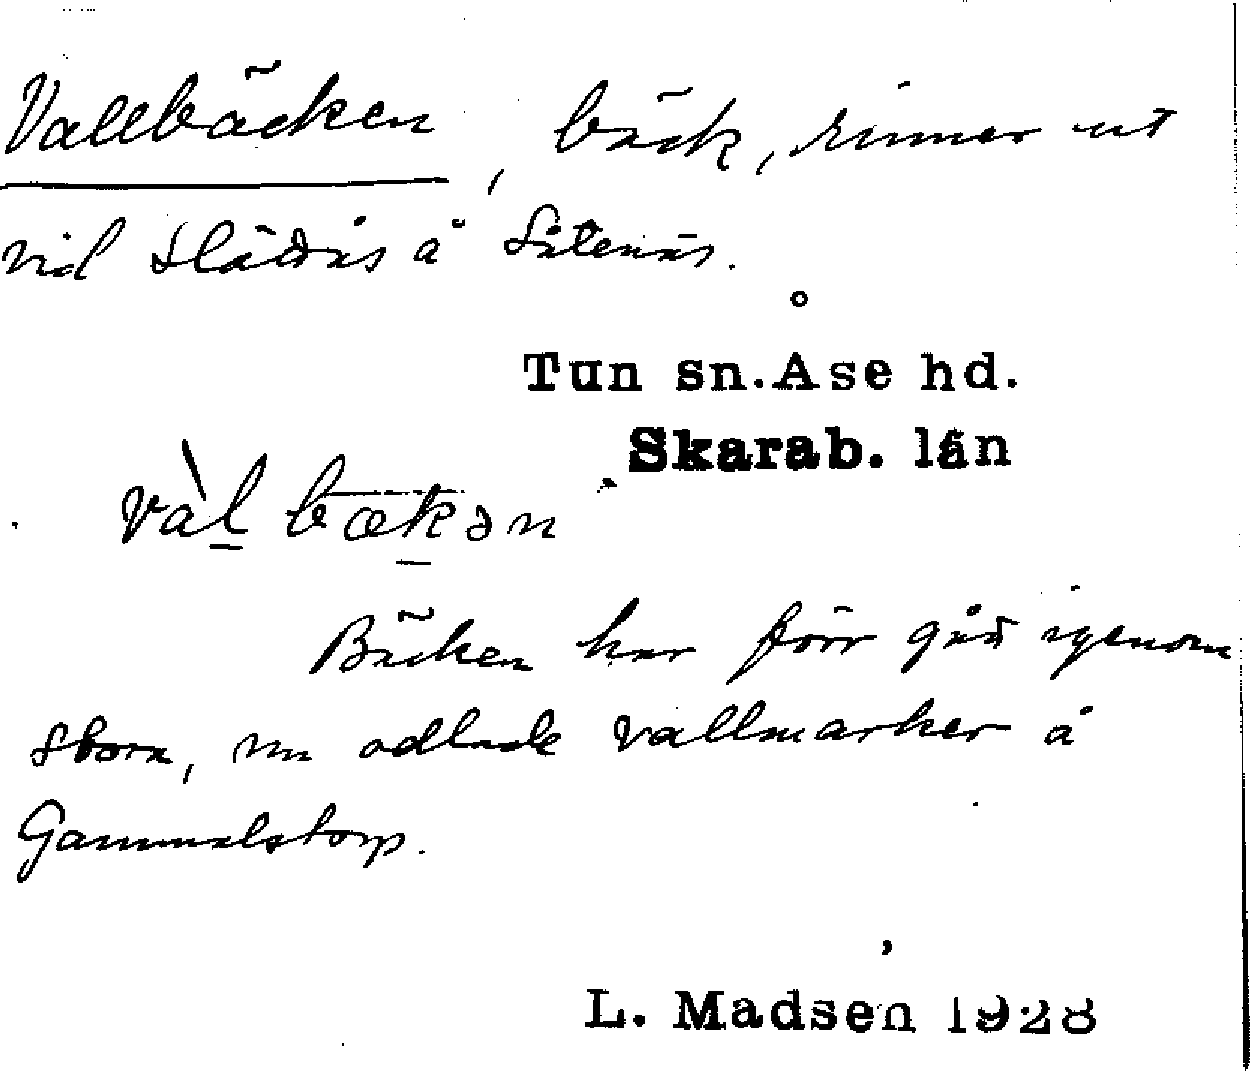 Vallbäcken, bäck, rinner ut
vid Slädås å Såtenäs.
Tun sn. Åse hd.
Skarab. län
vàl bækən
Bäcken har förr gått igenom
stora, nu odlade vallmarker å
Gammalstorp.
L. Madsen 1928